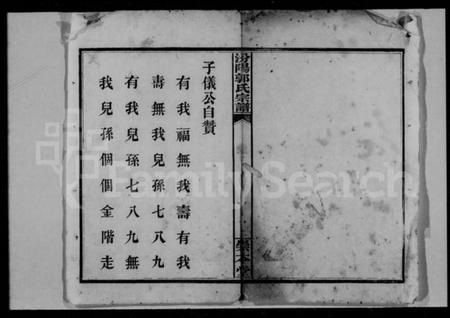 汾陽郭氏宗譜
子儀公自贊
有我福無我壽有我
壽無我兒孫七八九
有我兒孫七八九無
我兒孫個個金階走
FamilySearch